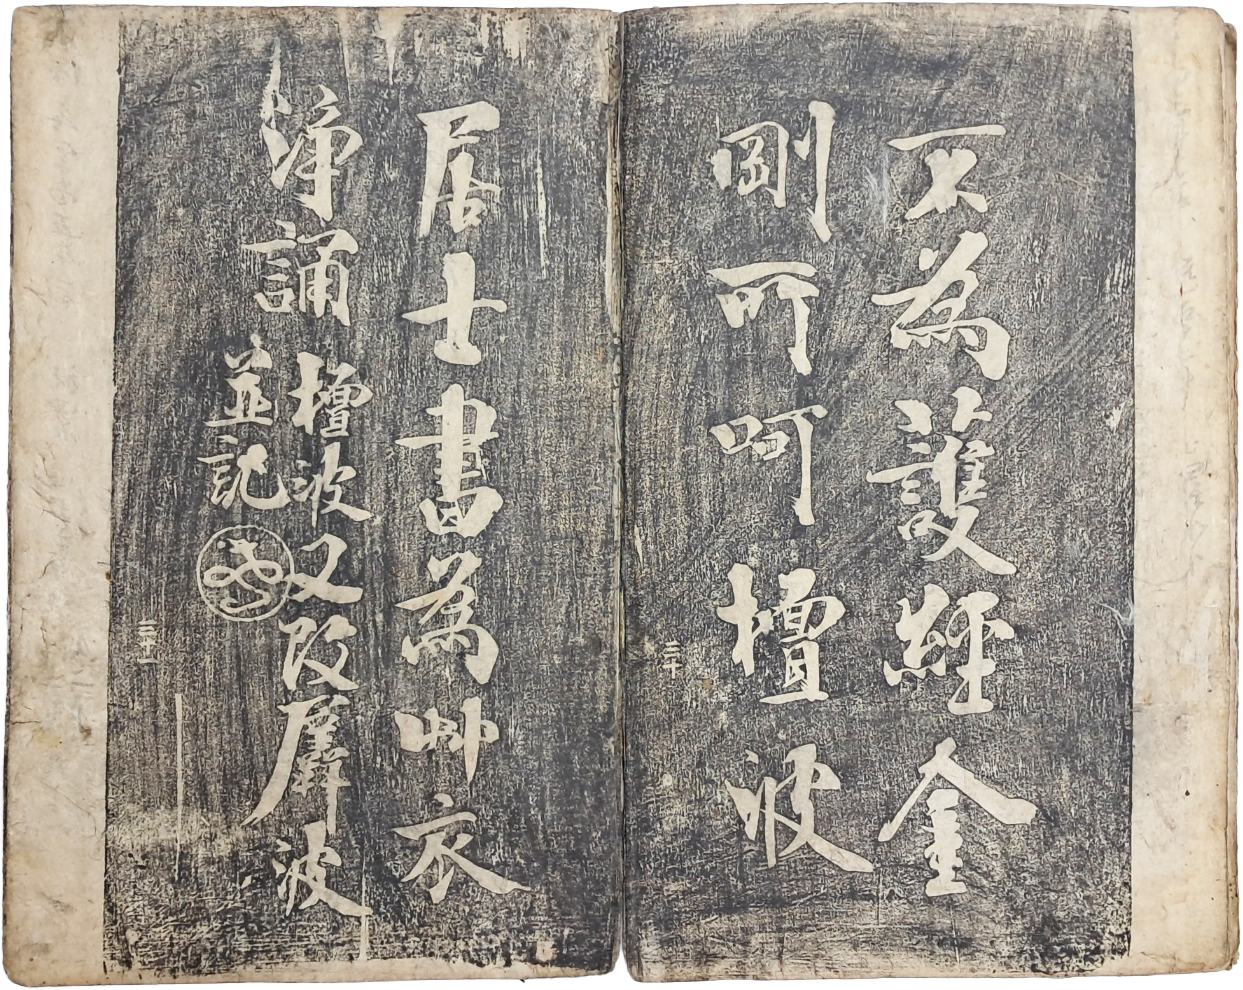 不為護經金
剛所呵檀波
三十
居士書為艸衣
淨誦
檀波又改羼波
並記
三十一